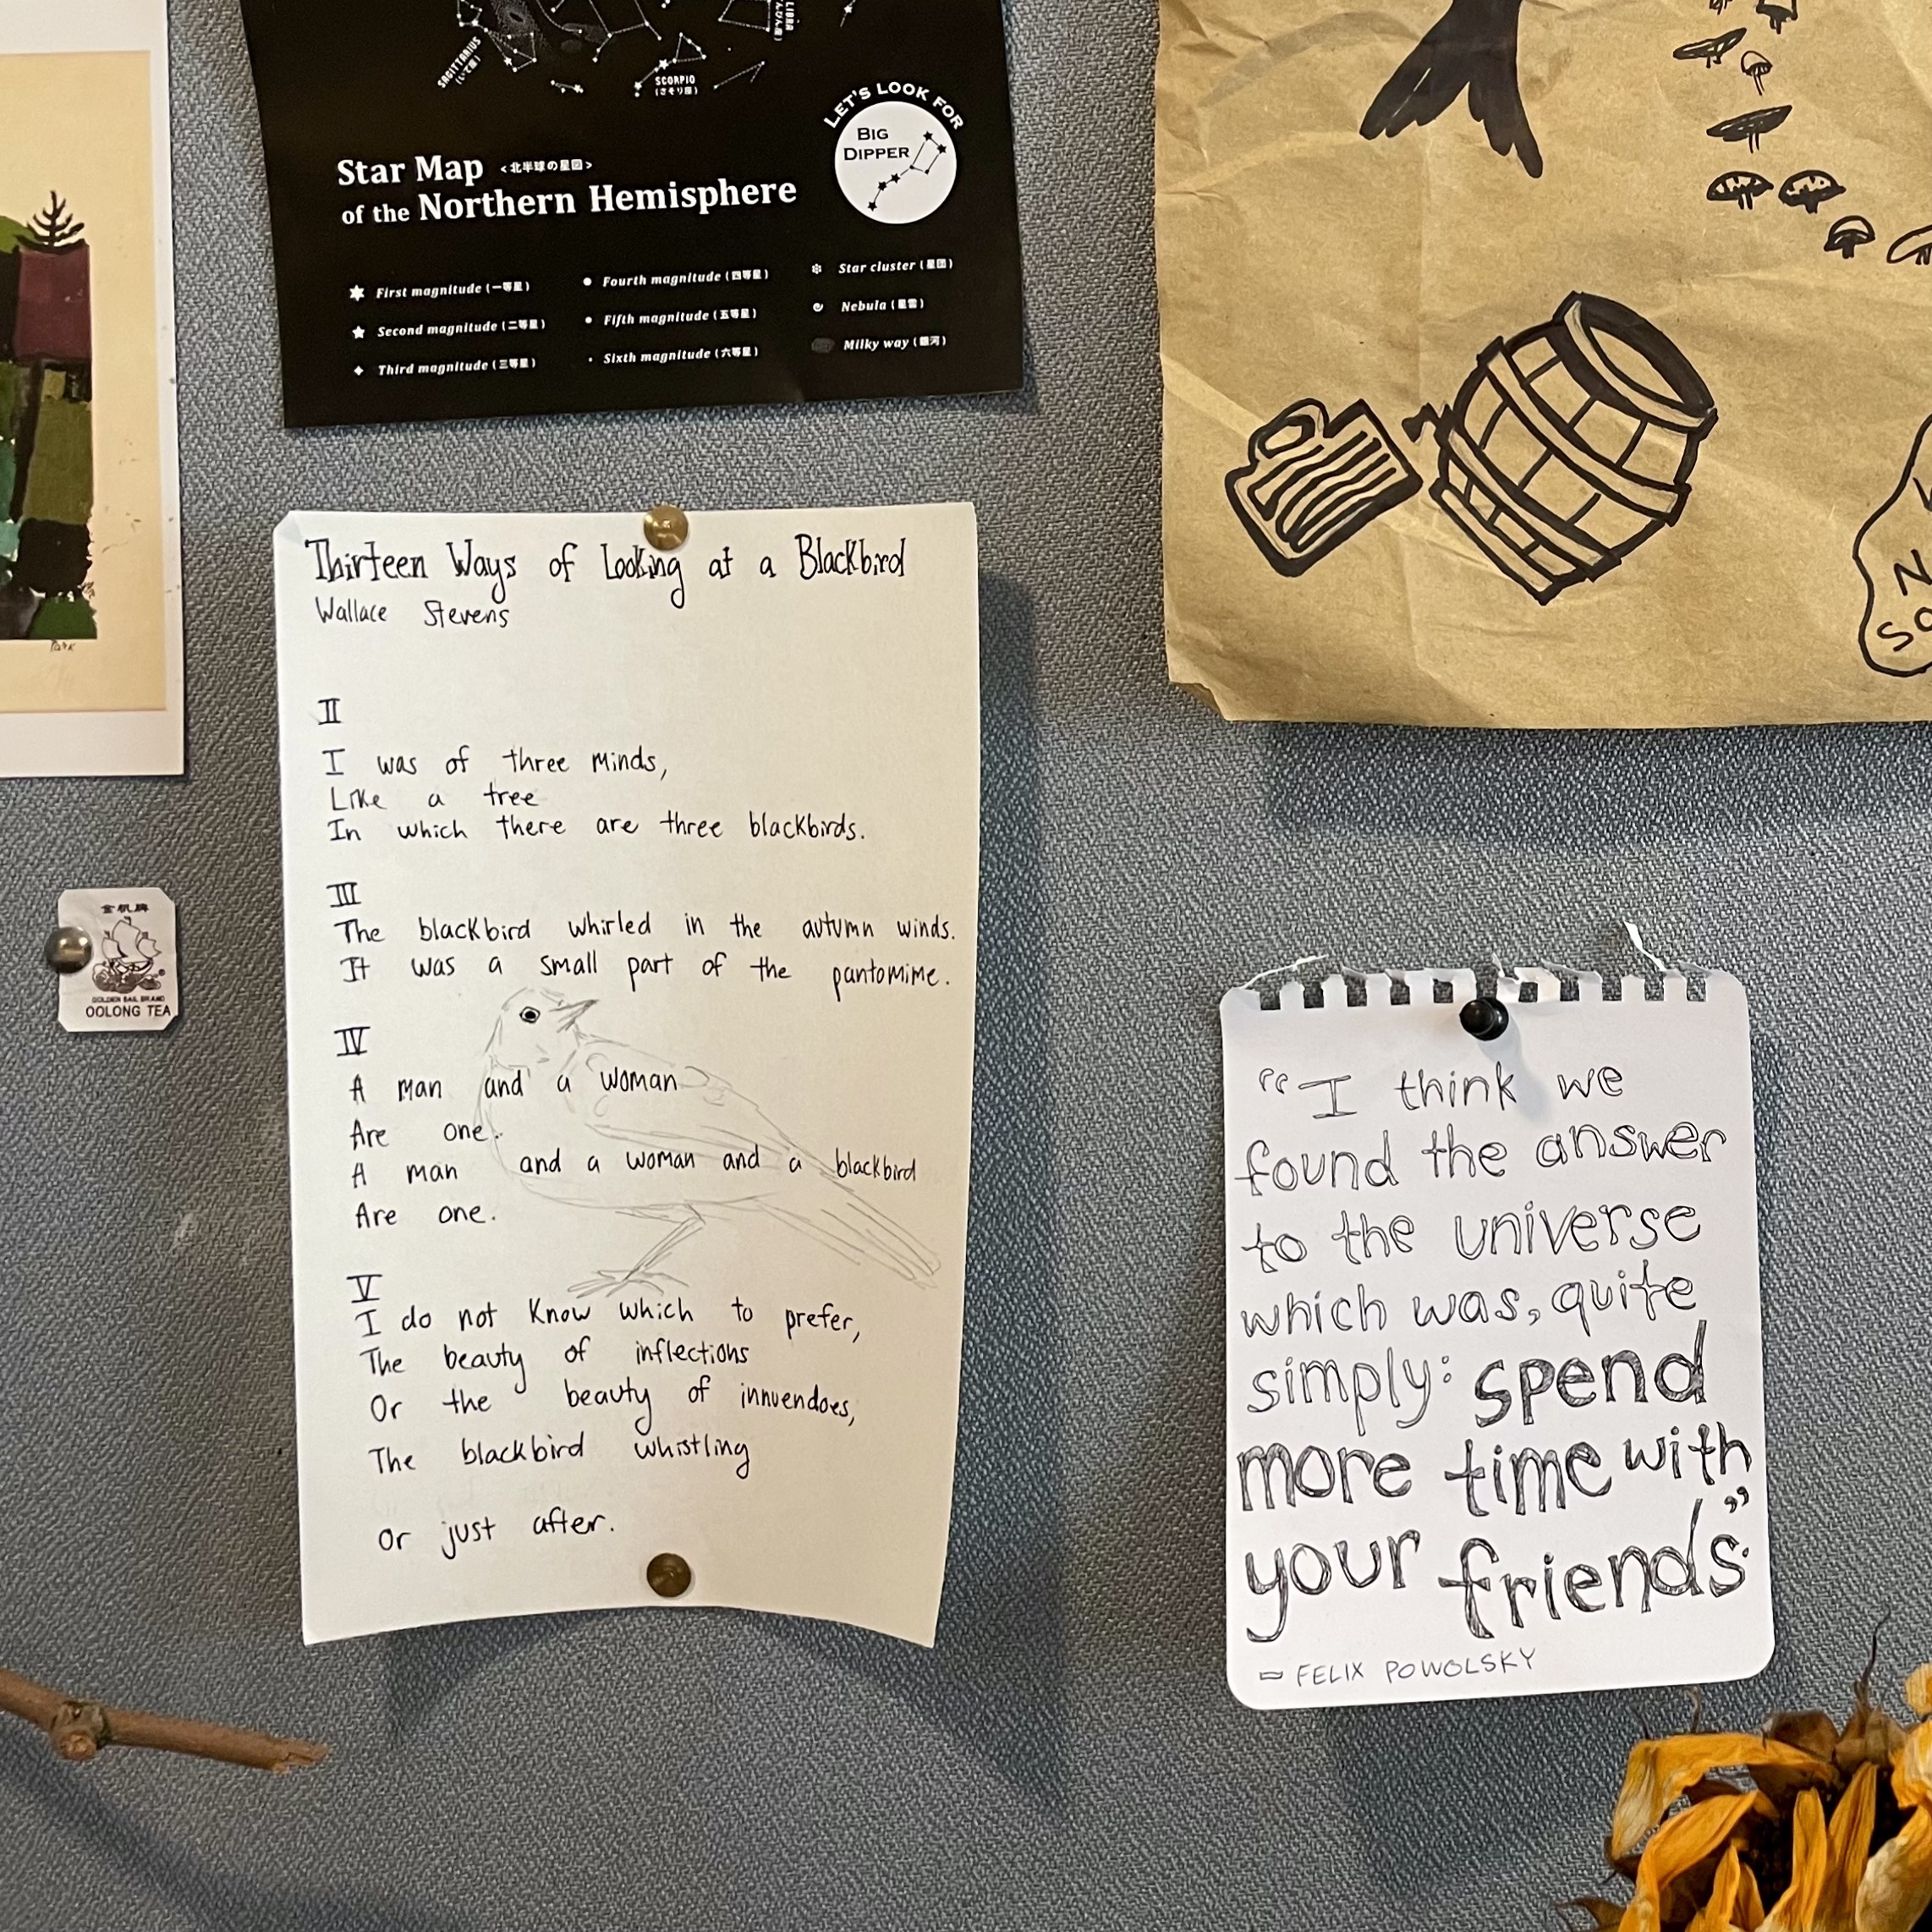 SAGITTARIUS
(いて座)
SCORPIO
(さそり座)
LIBRA
LET'S LOOK FOR
BIG
DIPPER
Star Map <北半球の星図>
of the Northern Hemisphere
First magnitude (一等星)
Second magnitude (二等星)
Third magnitude (三等星)
Fourth magnitude (四等星)
Fifth magnitude (五等星)
Sixth magnitude (六等星)
Star cluster (星団)
Nebula (星雲)
Milky way (銀河)
Park
Thirteen Ways of Looking at a Blackbird
Wallace Stevens
II
I was of three minds,
Like a tree
In which there are three blackbirds.
III
The blackbird whirled in the autumn winds.
It was a small part of the pantomime.
IV
A man and a woman
Are one.
A man and a woman and a blackbird
Are one.
V
I do not know which to prefer,
The beauty of inflections
Or the beauty of innuendoes,
The blackbird whistling
Or just after.
金帆牌
GOLDEN SAIL BRAND
OOLONG TEA
“I think we
found the answer
to the universe
which was, quite
simply: spend
more time with
your friends.”
- FELIX POWOLSKY